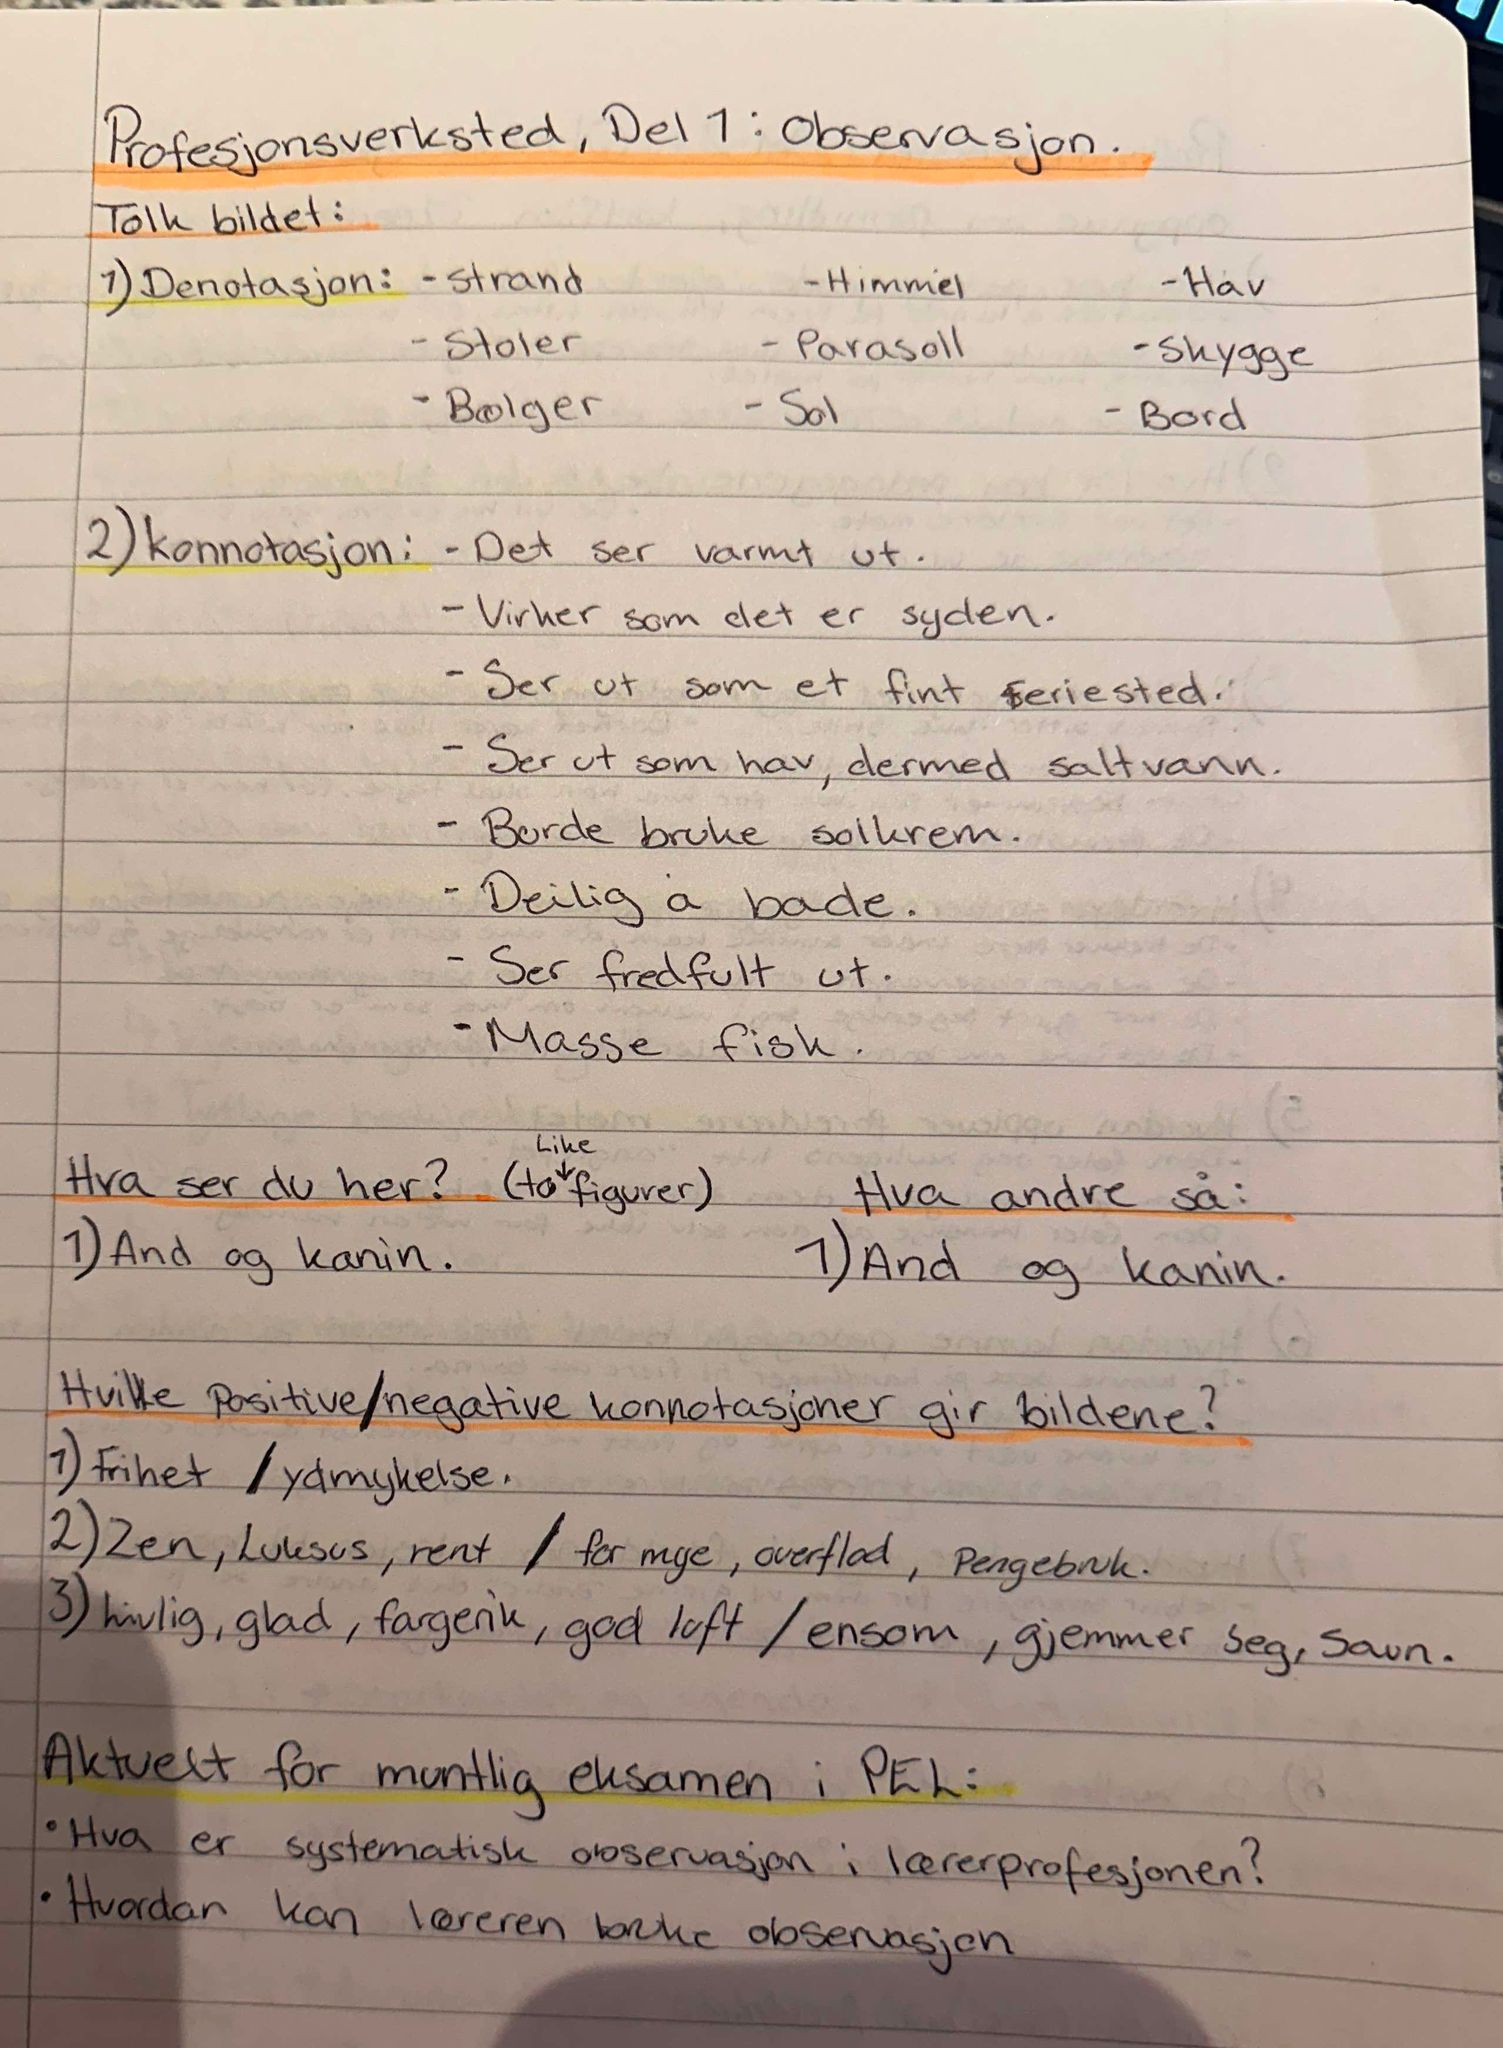 Profesjonsverksted, Del 1: Observasjon.
Tolk bildet:
1) Denotasjon: - Strand - Himmel - Hav
- Stoler - Parasoll - Skygge
- Bølger - Sol - Bord
2) konnotasjon: - Det ser varmt ut.
- Virker som det er syden.
- Ser ut som et fint feriested.
- Ser ut som hav, dermed saltvann.
- Burde bruke solkrem.
- Deilig å bade.
- Ser fredfult ut.
- Masse fisk.
Like
Hva ser du her? (to ↓ figurer) Hva andre så:
1) And og kanin. 1) And og kanin.
Hvilke Positive/negative konnotasjoner gir bildene?
1) Frihet / ydmykelse.
2) Zen, Luksus, rent / for mye, overflod, Pengebruk.
3) livlig, glad, fargerik, god luft / ensom, gjemmer seg, Savn.
Aktuelt for muntlig eksamen i PEL:
• Hva er systematisk observasjon i lærerprofesjonen?
• Hvordan kan læreren bruke observasjon